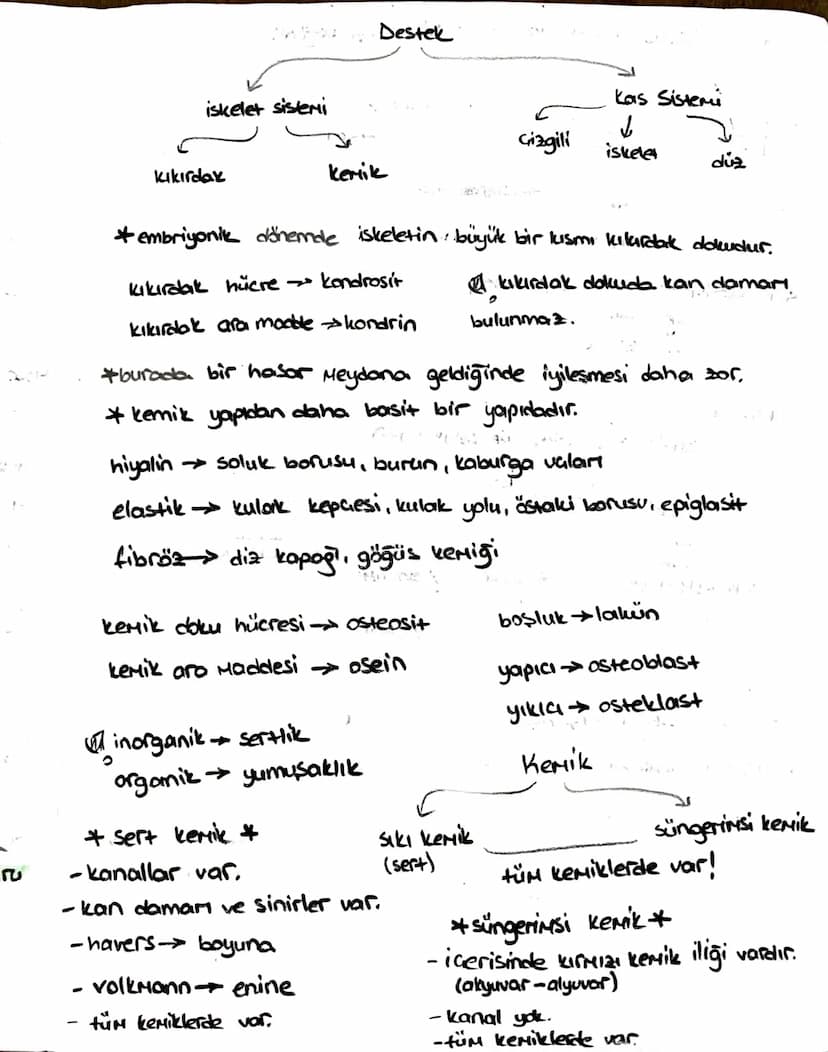 Destek
iskelet sistemi
Kas Sistemi
kıkırdak
kemik
Çizgili
iskelet
düz
*embriyonik dönemde iskeletin büyük bir kısmı kıkırdak dokudur.
kıkırdak hücre → kondrosit
kıkırdak dokuda kan damarı
kıkırdak ara madde → kondrin
bulunmaz.
*burada bir hasar meydana geldiğinde iyileşmesi daha zor.
* kemik yapıdan daha basit bir yapıdadır.
hiyalin → soluk borusu, burun, kaburga uçları
elastik → kulak kepçesi, kulak yolu, östaki borusu, epiglasit
fibröz → diz kapağı, göğüs kemiği
kemik doku hücresi → osteosit
boşluk → lakün
kemik ara maddesi → osein
yapıcı → osteoblast
yıkıcı → osteklast
inorganik → sertlik
organik → yumuşaklık
Kemik
sıkı kemik
(sert)
süngerimsi kemik
tüm kemiklerde var!
* sert kemik *
- kanallar var.
- kan damarı ve sinirler var.
- havers → boyuna
- volkmann → enine
- tüm kemiklerde var.
*süngerimsi kemik*
- içerisinde kırmızı kemik iliği vardır.
(akyuvar - alyuvar)
- kanal yok.
- tüm kemiklerde var.